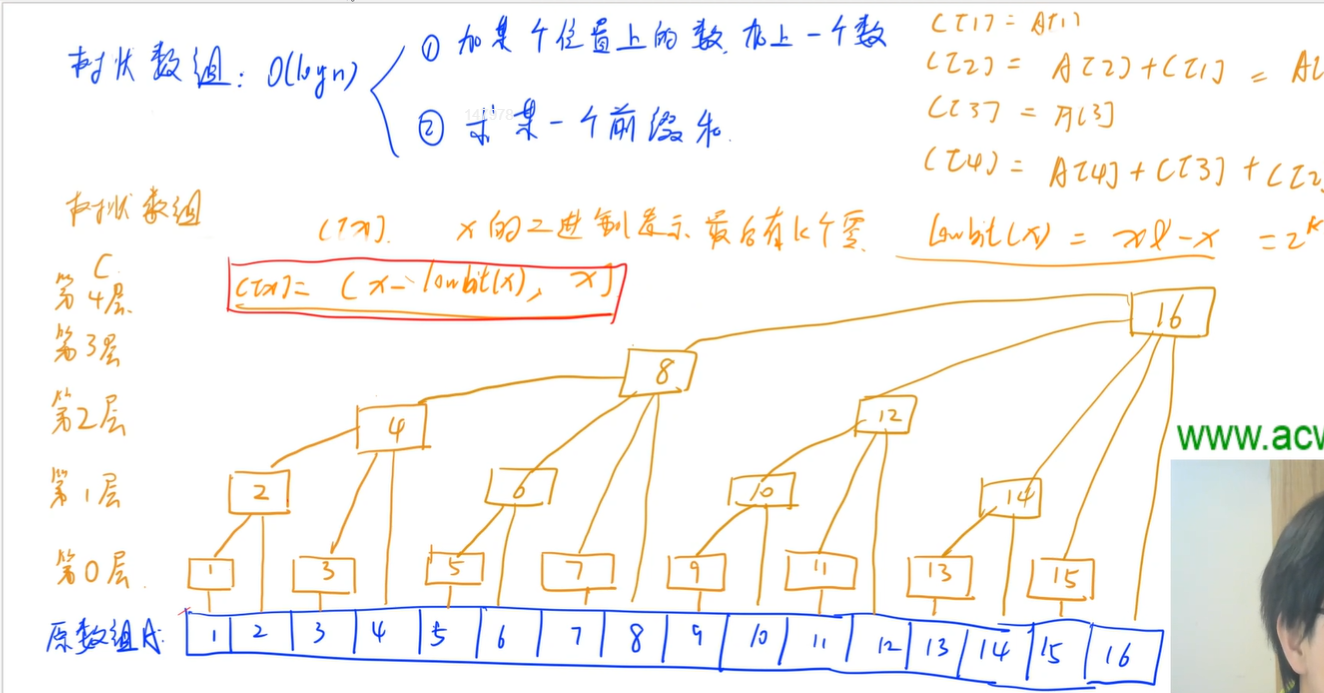 树状数组: O(logn)
① 加某个位置上的数,加上一个数
② 求某一个前缀和.
C[1] = A[1]
C[2] = A[2]+C[1] = A[
C[3] = A[3]
C[4] = A[4]+C[3]+C[2
树状数组
C[x]. x的二进制表示最后有k个零 lowbit(x) = x&-x = 2^k
C
C[x] = (x-lowbit(x), x]
第4层
16
第3层
8
第2层
4 12
www.acw
第1层
2 6 10 14
第0层
1 3 5 7 9 11 13 15
原数组A:
1 2 3 4 5 6 7 8 9 10 11 12 13 14 15 16